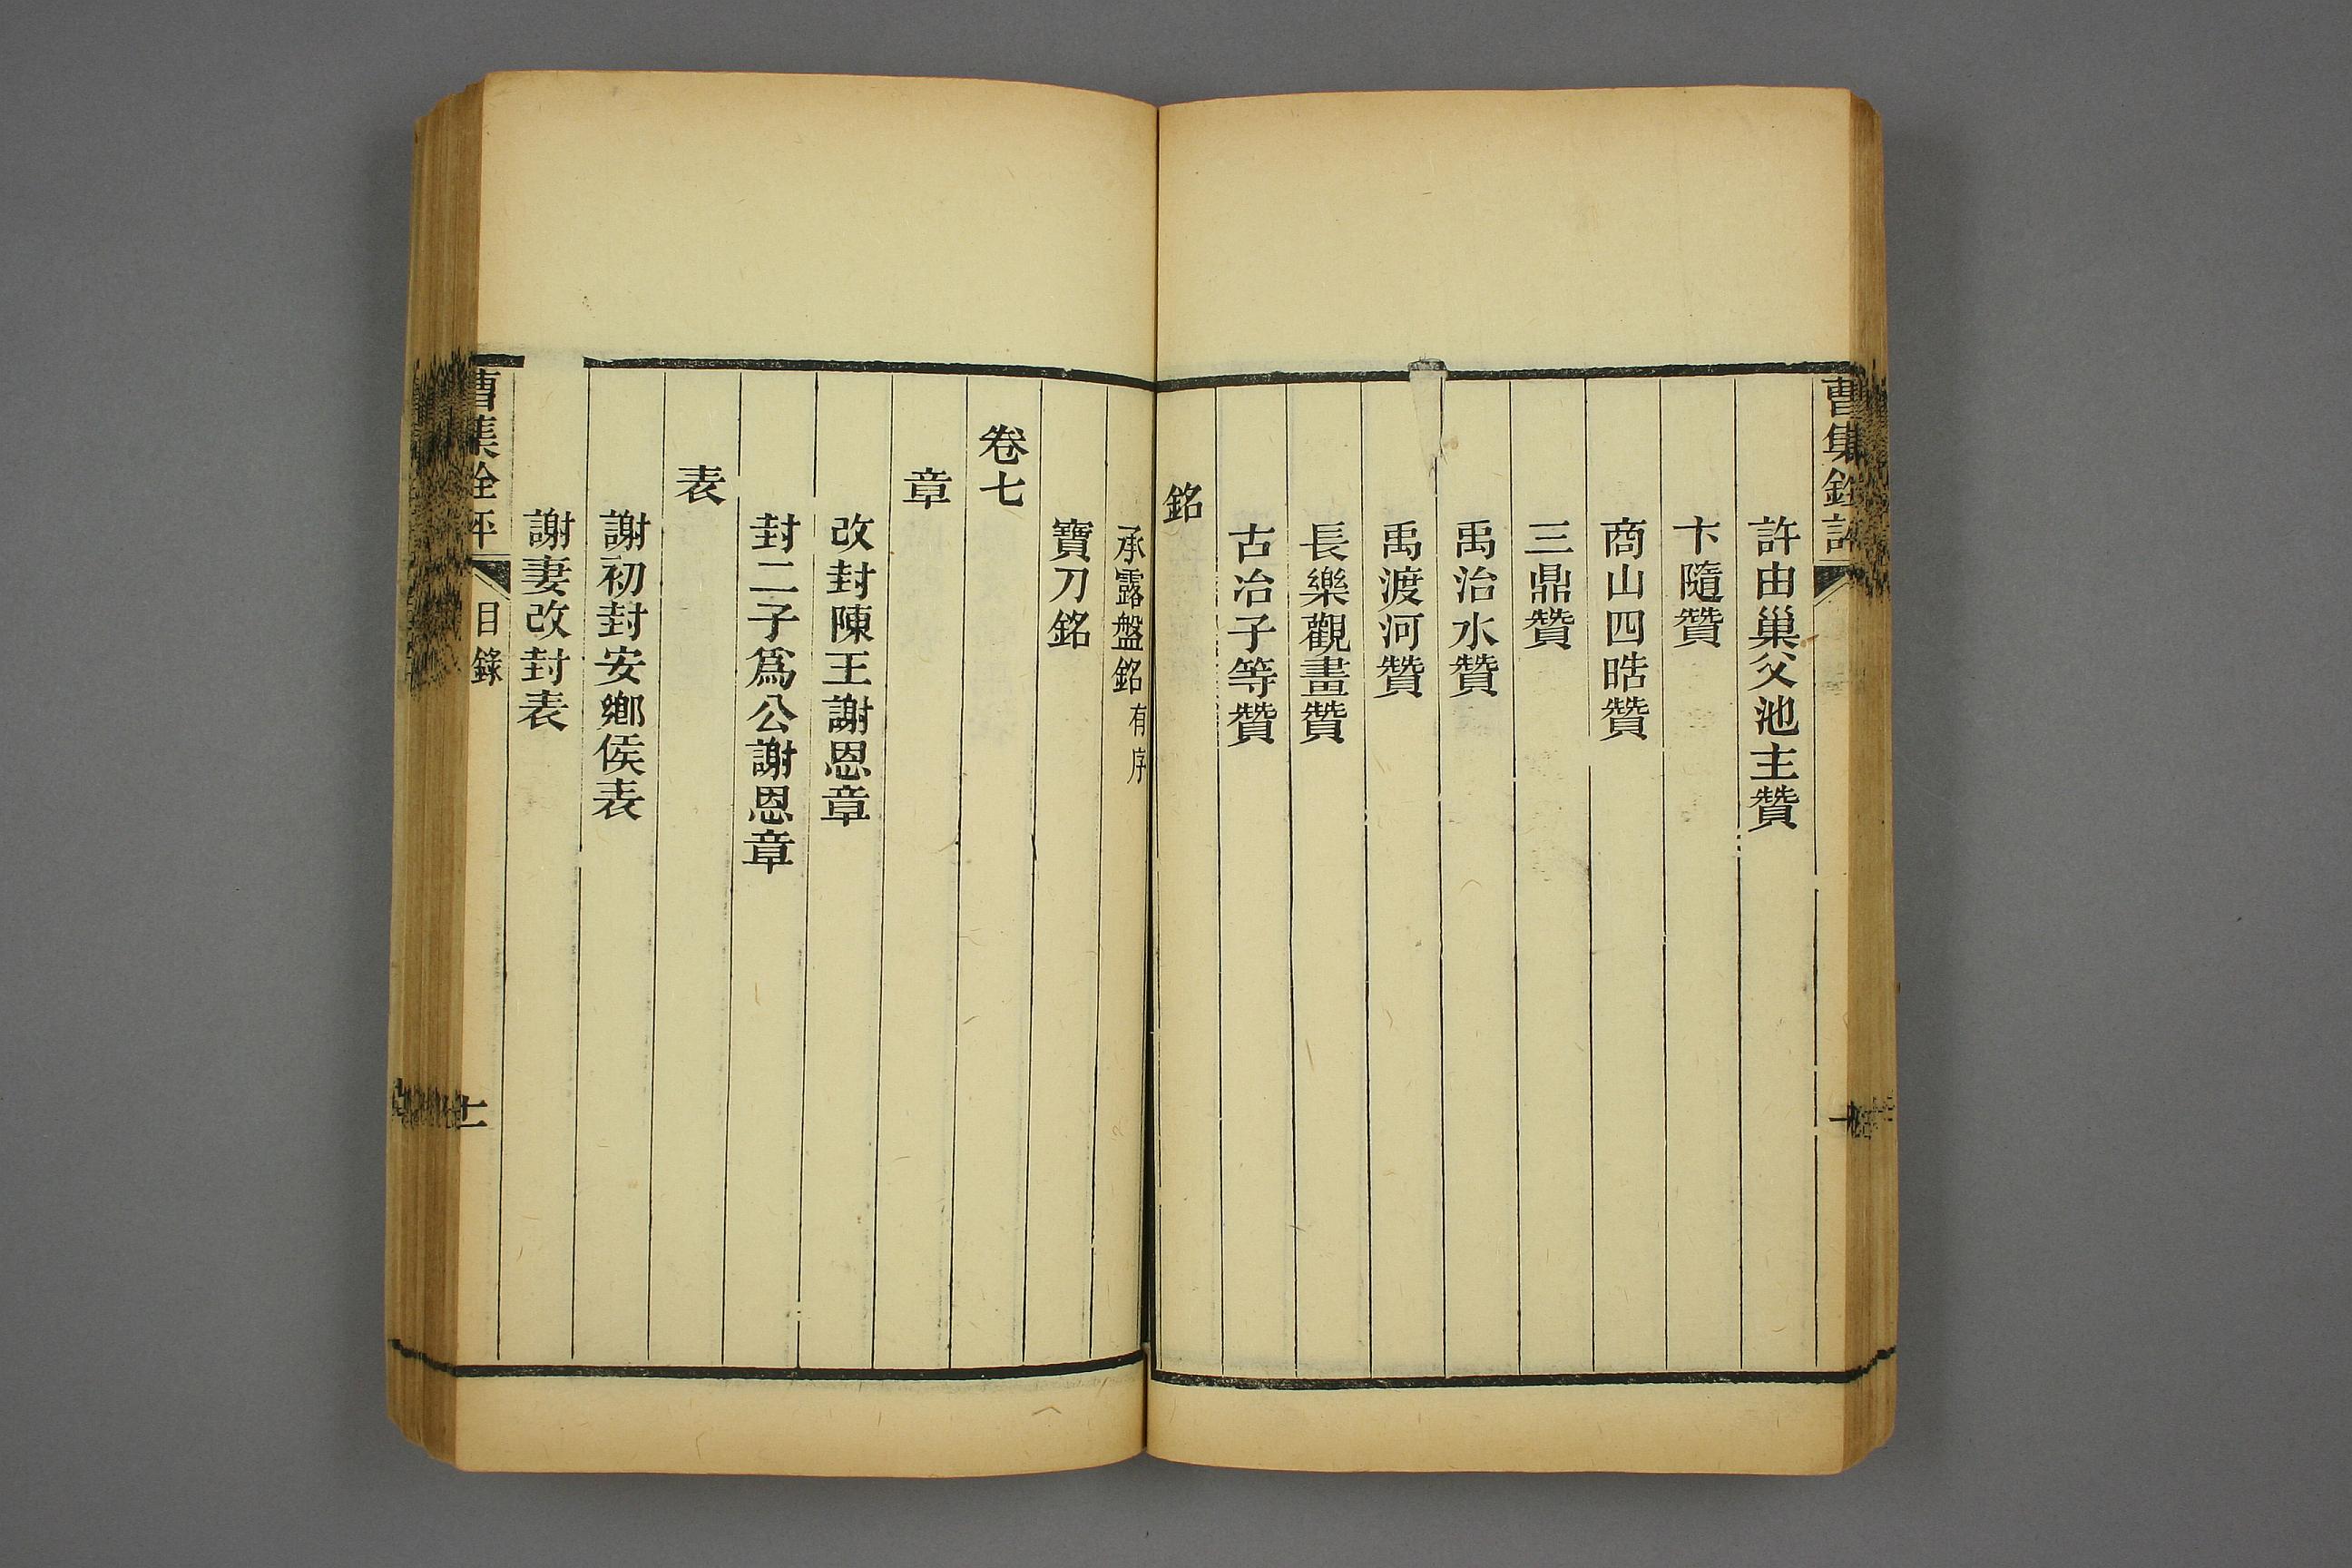 曹集銓評
許由巢父池主贊
卞隨贊
商山四晧贊
三鼎贊
禹治水贊
禹渡河贊
長樂觀畫贊
古冶子等贊
銘
承露盤銘有序
寶刀銘
卷七
章
改封陳王謝恩章
封二子爲公謝恩章
表
謝初封安鄉侯表
謝妻改封表
曹集銓評
目錄
十一